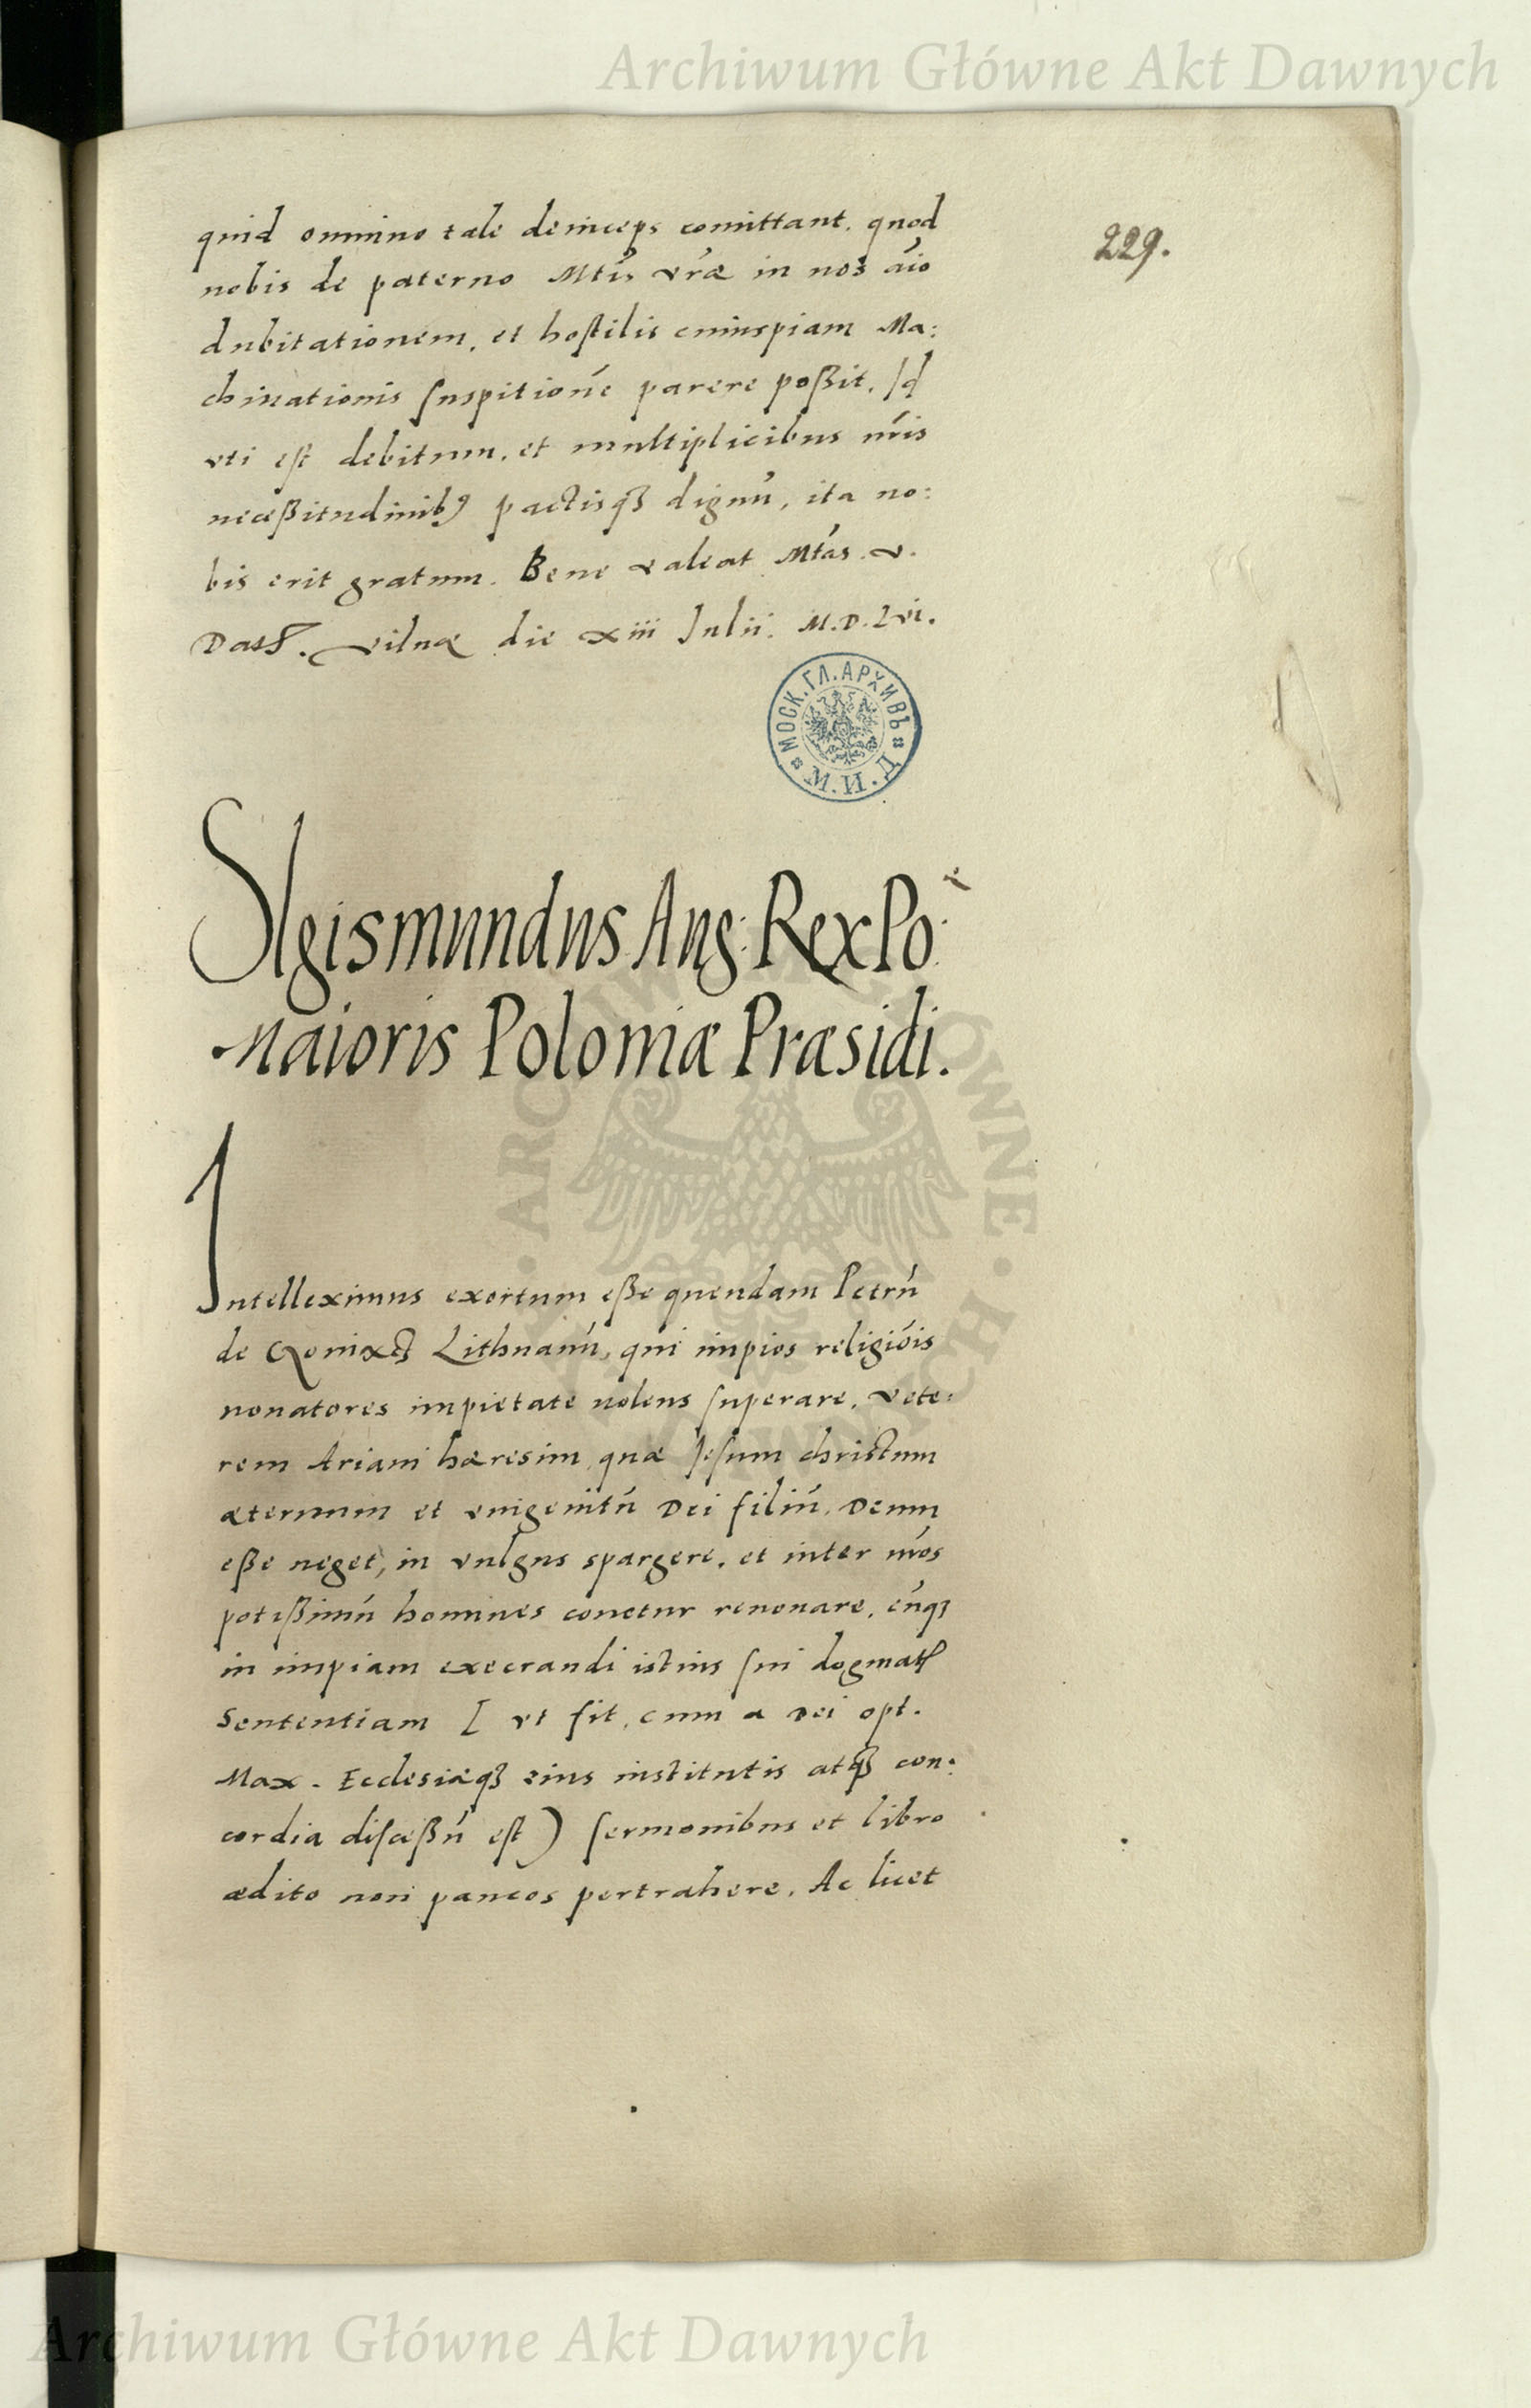 Archiwum Główne Akt Dawnych
229.
quid omnino tale deinceps comittant. quod
nobis de paterno Mtis vræ in nos aio
dubitationem, et hostilis cuiuspiam Ma:
chinationis suspitione parere poßit. Id
vti est debitum, et multiplicibus nris
neceßitudinib9 pactisq3 dignu, ita no:
bis erit gratum. Bene valeat Mtas. v.
Dat. Vilnæ die xiii Julii. M.D.Lvi.
МОСК. ГЛ. АРХИВЪ
М. И. Д.
SIgismundus Aug: Rex Po:
Maioris Poloniæ Præsidi.
Intelleximus exortum eße quendam Petru
de Lithuanu, qui impios religiois
nouatores impietate uolens superare, vete:
rem Ariani hæresim, quæ Jesum christum
æternum et vnigenitu Dei filiu, Deum
eße neget, in vulgus spargere, et inter nros
potißimu homines conetur renouare, euq3
in impiam execrandi istius sui dogmat
Sententiam [ vt fit, cum a Dei opt.
Max. Ecclesiæq3 eius institutis atq3 con:
cordia disceßu est) sermonibus et libro
ædito non paucos pertrahere. Ac licet
ARCHIWUM GŁÓWNE AKT DAWNYCH
Archiwum Główne Akt Dawnych